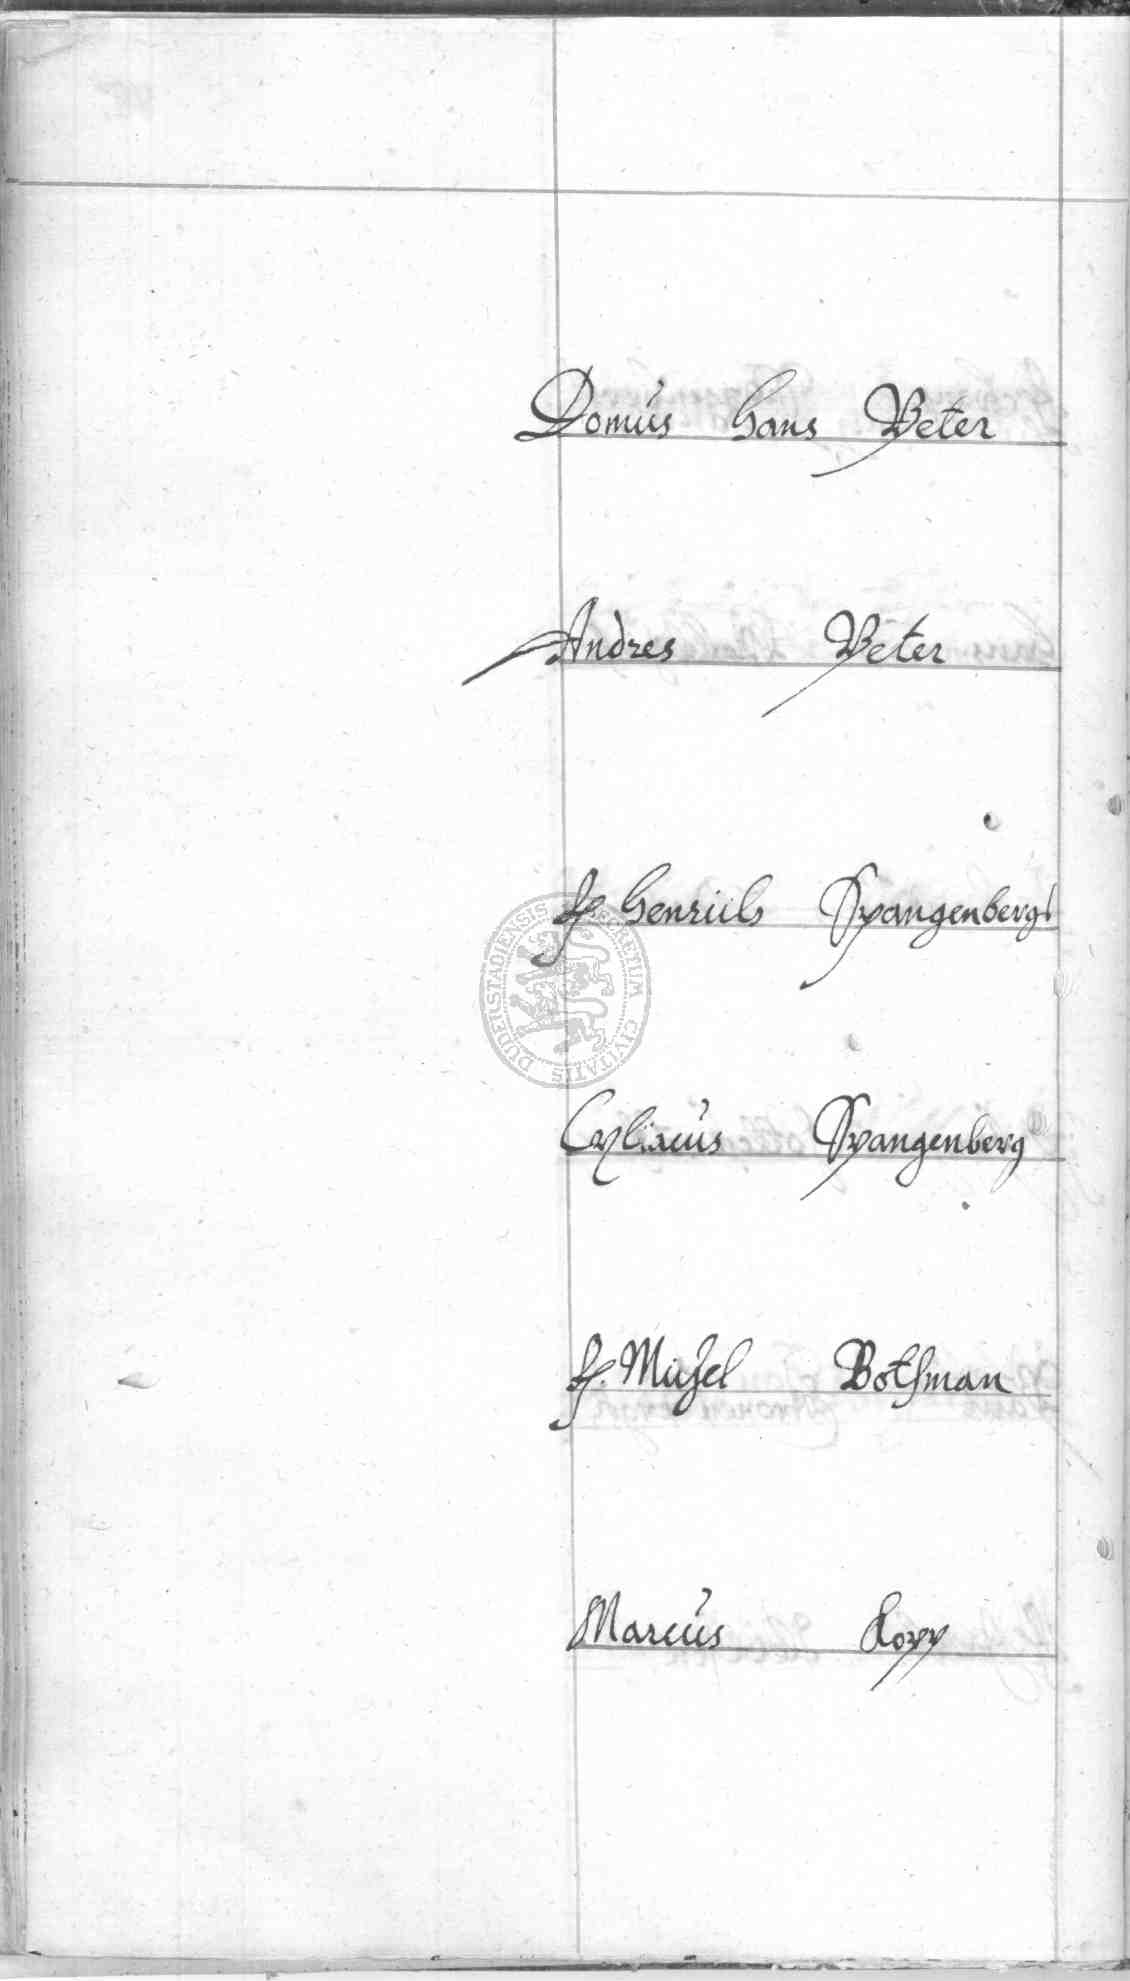 Domus Hans Peter
Andres Peter
H. Henrich Spangenbergs
Cyliacus Spangenberg
H. Michel Bothman
Marcus Kopp
SECRETUM CIVITATIS DUDERSTADIENSIS